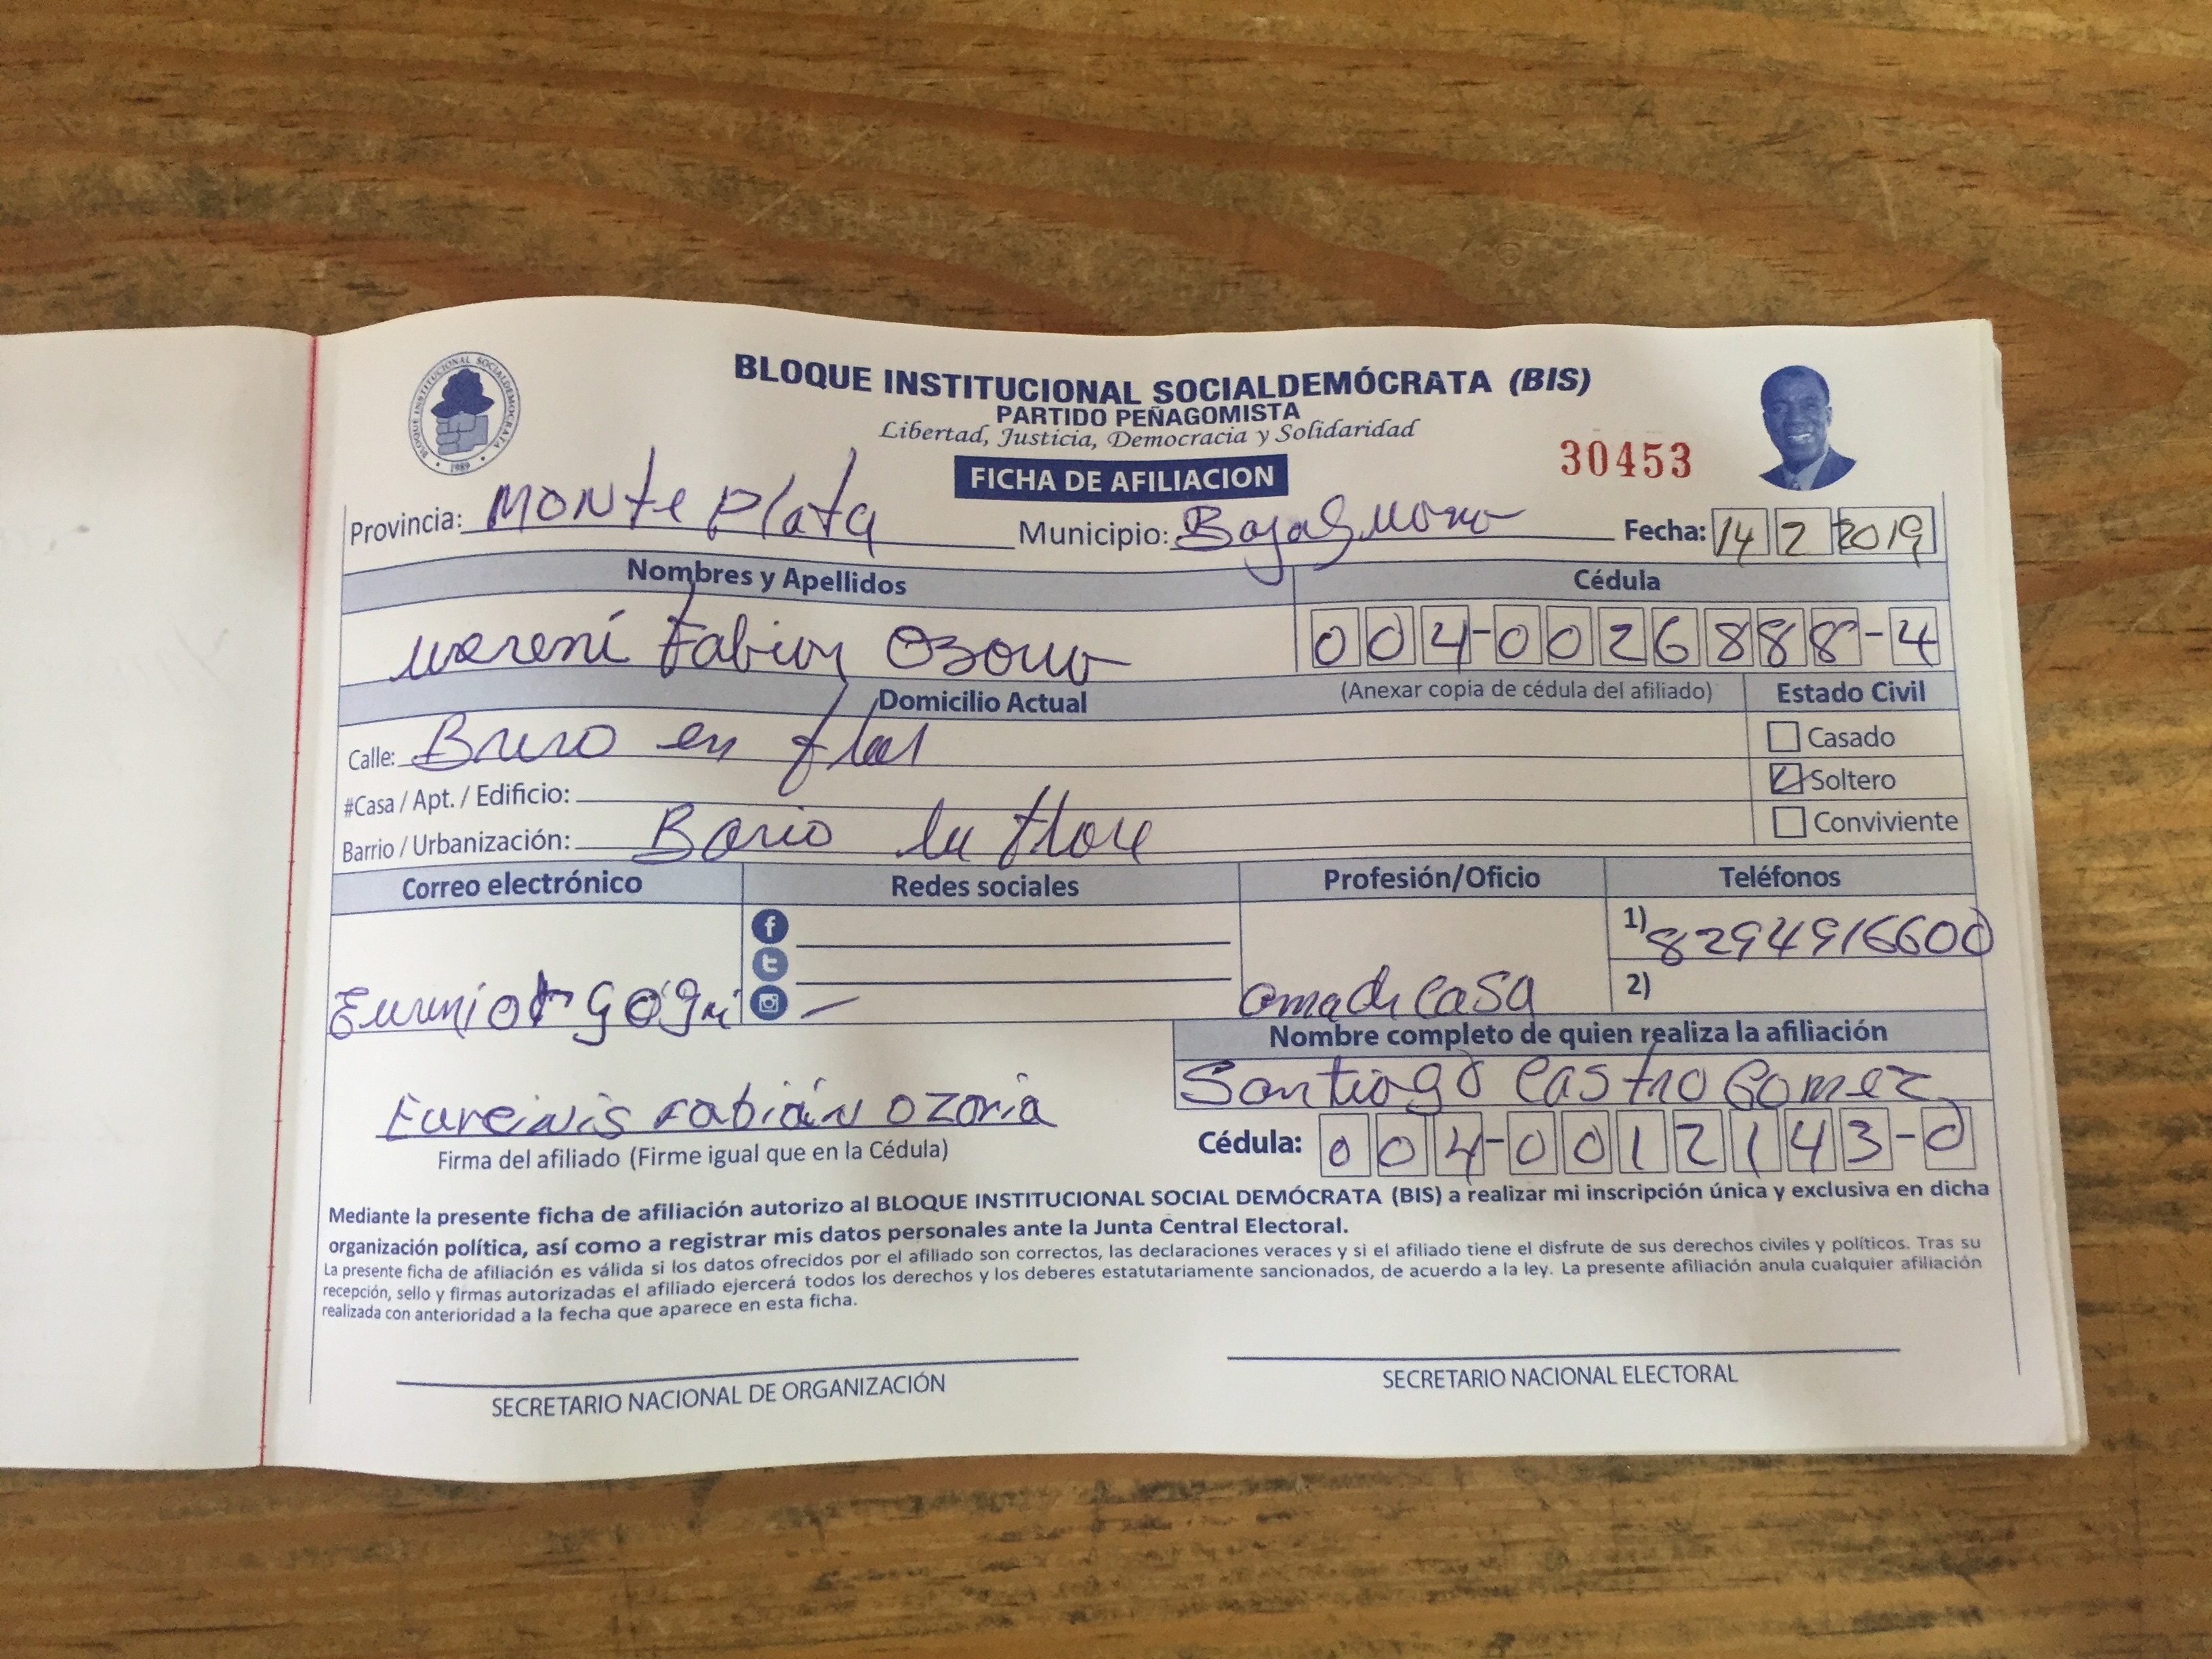 BLOQUE INSTITUCIONAL SOCIALDEMÓCRATA (BIS)
PARTIDO PEÑAGOMISTA
Libertad, Justicia, Democracia y Solidaridad
BLOQUE INSTITUCIONAL SOCIALDEMOCRATA
1989
FICHA DE AFILIACION
30453
Provincia: MONte Plata Municipio: Fecha: 14 2 2019
Nombres y Apellidos Cédula
Fabian 004-0026888-4
Domicilio Actual (Anexar copia de cédula del afiliado) Estado Civil
Calle: en Casado
#Casa / Apt. / Edificio: Soltero
Barrio / Urbanización: Conviviente
Correo electrónico Redes sociales Profesión/Oficio Teléfonos
1) 8294916600
2)
amadecasa
Nombre completo de quien realiza la afiliación
Santiago Castro Gomez
Fabián Ozoria
Firma del afiliado (Firme igual que en la Cédula)
Cédula: 004-0012143-0
Mediante la presente ficha de afiliación autorizo al BLOQUE INSTITUCIONAL SOCIAL DEMÓCRATA (BIS) a realizar mi inscripción única y exclusiva en dicha
organización política, así como a registrar mis datos personales ante la Junta Central Electoral.
La presente ficha de afiliación es válida si los datos ofrecidos por el afiliado son correctos, las declaraciones veraces y si el afiliado tiene el disfrute de sus derechos civiles y políticos. Tras su
recepción, sello y firmas autorizadas el afiliado ejercerá todos los derechos y los deberes estatutariamente sancionados, de acuerdo a la ley. La presente afiliación anula cualquier afiliación
realizada con anterioridad a la fecha que aparece en esta ficha.
SECRETARIO NACIONAL DE ORGANIZACIÓN
SECRETARIO NACIONAL ELECTORAL